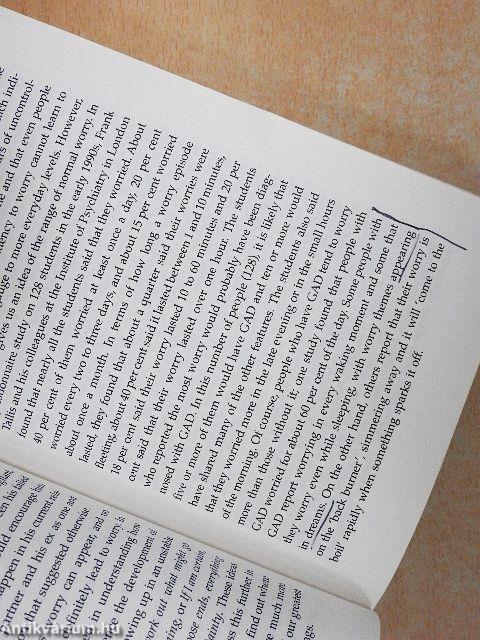 ch indi-
ts of uncontrol-
e and that even people
dency to worry cannot learn to
gings to more everyday levels. However,
gives us an idea of the range of normal worry. In
ionnaire study on 128 students in the early 1990s, Frank
Tallis and his colleagues at the Institute of Psychiatry in London
found that nearly all the students said that they worried. About
40 per cent of them worried at least once a day, 20 per cent
worried every two to three days, and about 15 per cent worried
about once a month. In terms of how long a worry episode
lasted, they found that about a quarter said their worries were
fleeting, about 40 per cent said it lasted between 1 and 10 minutes,
18 per cent said their worry lasted 10 to 60 minutes and 20 per
cent said that their worry lasted over one hour. The students
who reported the most worry would probably have been diag-
nosed with GAD. In this number of people (128), it is likely that
five or more of them would have GAD and ten or more would
have shared many of the other features. The students also said
that they worried more in the late evening or in the small hours
of the morning. Of course, people who have GAD tend to worry
more than those without it, one study found that people with
GAD worried for about 60 per cent of the day. Some people with
GAD report worrying in every waking moment and some that
they worry even while sleeping, with worry themes appearing
in dreams. On the other hand, others report that their worry is
on the 'back burner' simmering away and it will 'come to the
boil' rapidly when something sparks it off.
en his
uld encourage his
appen in his current
rtner and his ex as
that suggested otherwise
orry can appear, and
finitely lead to worry, is
n understanding
the development of
wing up in an unstable
work out what might
ing, or if I am certain,
ose ends, everything
tainty. These ideas
ss this further in
find out when
e much more
ur greatest
ngs.
Antikvarium.hu